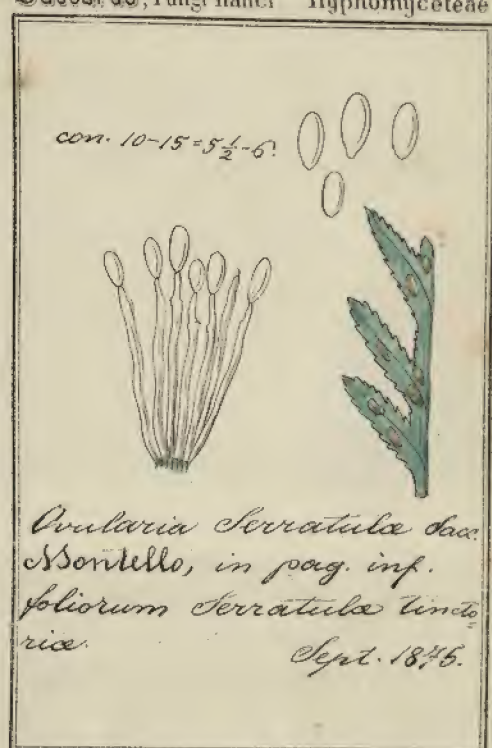 Saccardo, Fungi italici Hyphomyceteae
con. 10-15=5½-6.
Ovularia Serratulæ Sacc.
Montello, in pag. inf.
foliorum Serratulæ tincto=
riæ.
Sept. 1875.